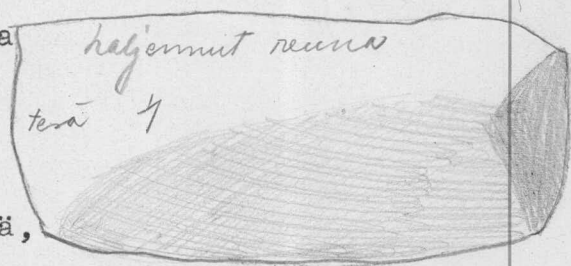 a
haljennut reuna
terä 4
ä,